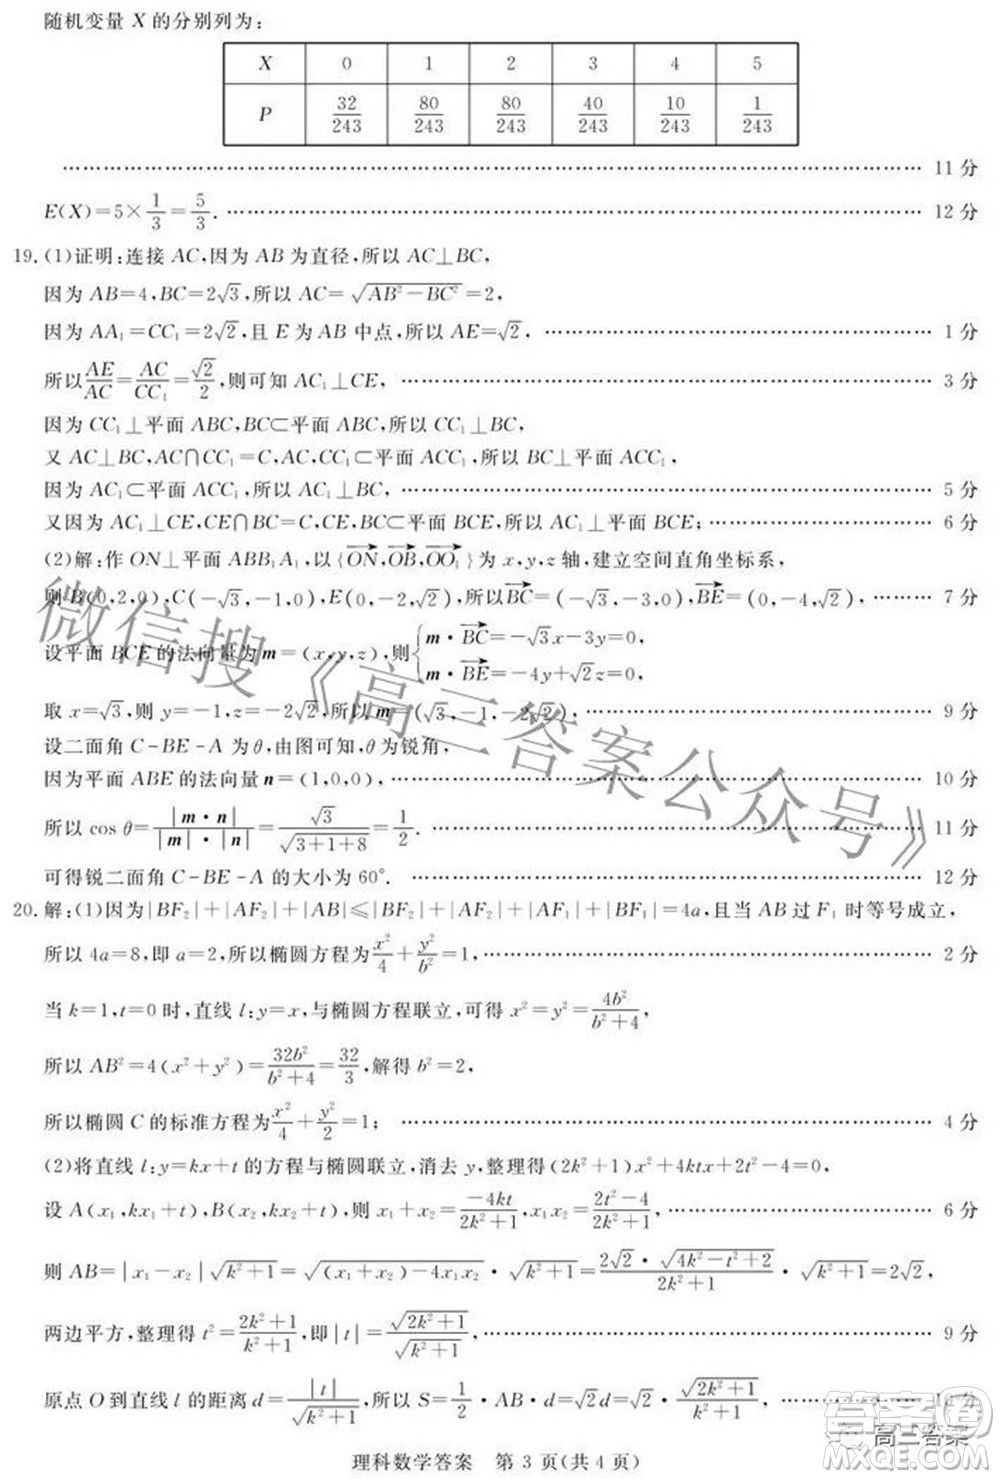 随机变量 X 的分别列为：
X 0 1 2 3 4 5
P 32/243 80/243 80/243 40/243 10/243 1/243
…………………………………………………… 11 分
E(X)=5×1/3=5/3. …………………………………………………… 12 分
19. (1)证明：连接 AC，因为 AB 为直径，所以 AC⊥BC，
因为 AB=4，BC=2√3，所以 AC=√(AB²−BC²)=2，
因为 AA₁=CC₁=2√2，且 E 为 AB 中点，所以 AE=√2， …………………………………… 1 分
所以 AE/AC=AC/CC₁=√2/2，则可知 AC₁⊥CE， …………………………………… 3 分
因为 CC₁⊥平面 ABC，BC⊂平面 ABC，所以 CC₁⊥BC，
又 AC⊥BC，AC∩CC₁=C，AC，CC₁⊂平面 ACC₁，所以 BC⊥平面 ACC₁，
因为 AC₁⊂平面 ACC₁，所以 AC₁⊥BC， …………………………………… 5 分
又因为 AC₁⊥CE，CE∩BC=C，CE，BC⊂平面 BCE，所以 AC₁⊥平面 BCE； …………………… 6 分
(2)解：作 ON⊥平面 ABB₁A₁，以{ON→，OB→，OO₁→}为 x，y，z 轴，建立空间直角坐标系，
则 B(0，2，0)，C(−√3，−1，0)，E(0，−2，√2)，所以BC→=(−√3，−3，0)，BE→=(0，−4，√2)， ……… 7 分
设平面 BCE 的法向量为 m=(x，y，z)，则{m·BC→=−√3x−3y=0， m·BE→=−4y+√2z=0，
取 x=√3，则 y=−1，z=−2√2，所以 m (√3，−1，−2√2)； …………………………………… 9 分
设二面角 C−BE−A 为 θ，由图可知，θ 为锐角，
因为平面 ABE 的法向量 n=(1，0，0)， …………………………………… 10 分
所以 cos θ=|m·n|/(|m|·|n|)=√3/√(3+1+8)=1/2. …………………………………… 11 分
可得锐二面角 C−BE−A 的大小为 60°. …………………………………… 12 分
20. 解：(1)因为|BF₂|+|AF₂|+|AB|≤|BF₂|+|AF₂|+|AF₁|+|BF₁|=4a，且当 AB 过 F₁ 时等号成立，
所以 4a=8，即 a=2，所以椭圆方程为 x²/4+y²/b²=1， …………………………………… 2 分
当 k=1，t=0 时，直线 l：y=x，与椭圆方程联立，可得 x²=y²=4b²/(b²+4)，
所以 AB²=4(x²+y²)=32b²/(b²+4)=32/3，解得 b²=2，
所以椭圆 C 的标准方程为 x²/4+y²/2=1； …………………………………… 4 分
(2)将直线 l：y=kx+t 的方程与椭圆联立，消去 y，整理得(2k²+1)x²+4ktx+2t²−4=0，
设 A(x₁，kx₁+t)，B(x₂，kx₂+t)，则 x₁+x₂=−4kt/(2k²+1)，x₁x₂=(2t²−4)/(2k²+1)， …………………… 6 分
则 AB=|x₁−x₂|√(k²+1)=√((x₁+x₂)−4x₁x₂)·√(k²+1)=2√2·√(4k²−t²+2)/(2k²+1)·√(k²+1)=2√2，
两边平方，整理得 t²=(2k²+1)/(k²+1)，即|t|=√(2k²+1)/√(k²+1)， …………………………………… 9 分
原点 O 到直线 l 的距离 d=|t|/√(k²+1)，所以 S=1/2·AB·d=√2d=√2·√(2k²+1)/(k²+1)， ………… 分
理科数学答案 第 3 页(共 4 页)
微信搜《高三答案公众号》
高三答案
MXQE.COM